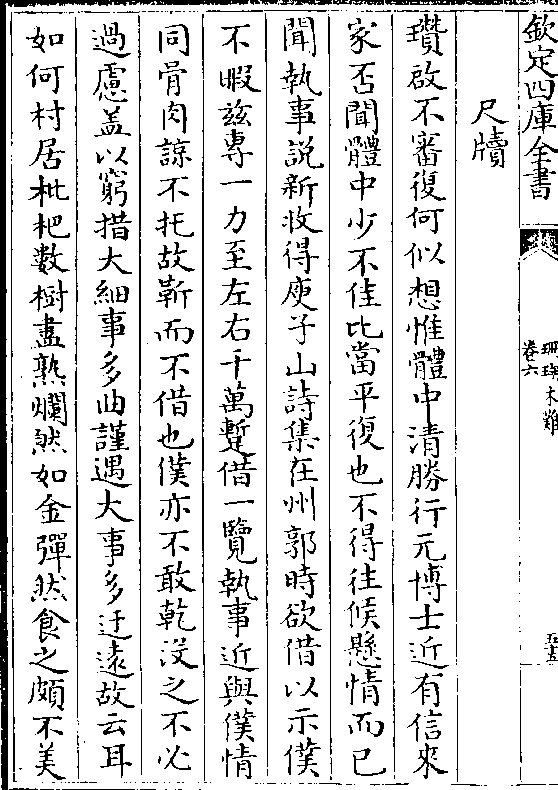 欽定四庫全書
珊瑚木難
卷六
五十五
尺牘
瓚啟不審復何似想惟體中清勝行元博士近有信來
家否聞體中少不佳比當平復也不得往候懸情而已
聞執事説新收得庾子山詩集在州郭時欲借以示僕
不暇兹専一力至左右千萬蹔借一覽執事近與僕情
同骨肉諒不托故靳而不借也僕亦不敢乾沒之不必
過慮葢以窮措大細事多曲謹遇大事多迂遠故云耳
如何村居枇杷數樹盡熟爛然如金彈然食之頗不美